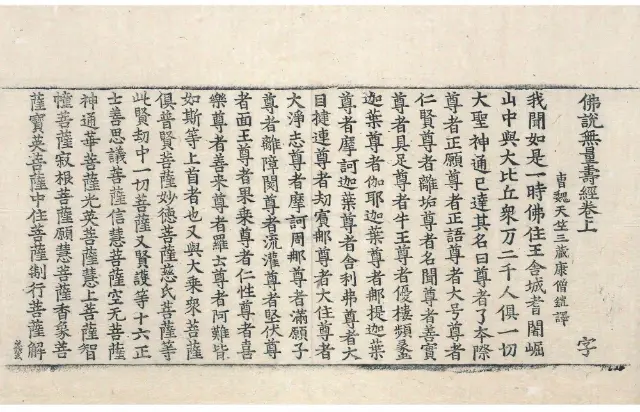 佛說無量壽經卷上 字
曹魏天竺三藏康僧鎧譯
我聞如是一時佛住王舍城耆闍崛
山中與大比丘眾万二千人俱一切
大聖神通已達其名曰尊者了本際
尊者正願尊者正語尊者大号尊者
仁賢尊者離垢尊者名聞尊者善實
尊者具足尊者牛王尊者優樓頻蠡
迦葉尊者伽耶迦葉尊者那提迦葉
尊者摩訶迦葉尊者舍利弗尊者大
目揵連尊者劫賓那尊者大住尊者
大淨志尊者摩訶周那尊者滿願子
尊者離障閡尊者流灌尊者堅伏尊
者面王尊者果乘尊者仁性尊者喜
樂尊者善來尊者羅云尊者阿難皆
如斯等上首者也又與大乘眾菩薩
俱普賢菩薩妙德菩薩慈氏菩薩等
此賢劫中一切菩薩又賢護等十六正
士善思議菩薩信慧菩薩空无菩薩
神通華菩薩光英菩薩慧上菩薩智
幢菩薩寂根菩薩願慧菩薩香象菩
薩寶英菩薩中住菩薩制行菩薩解